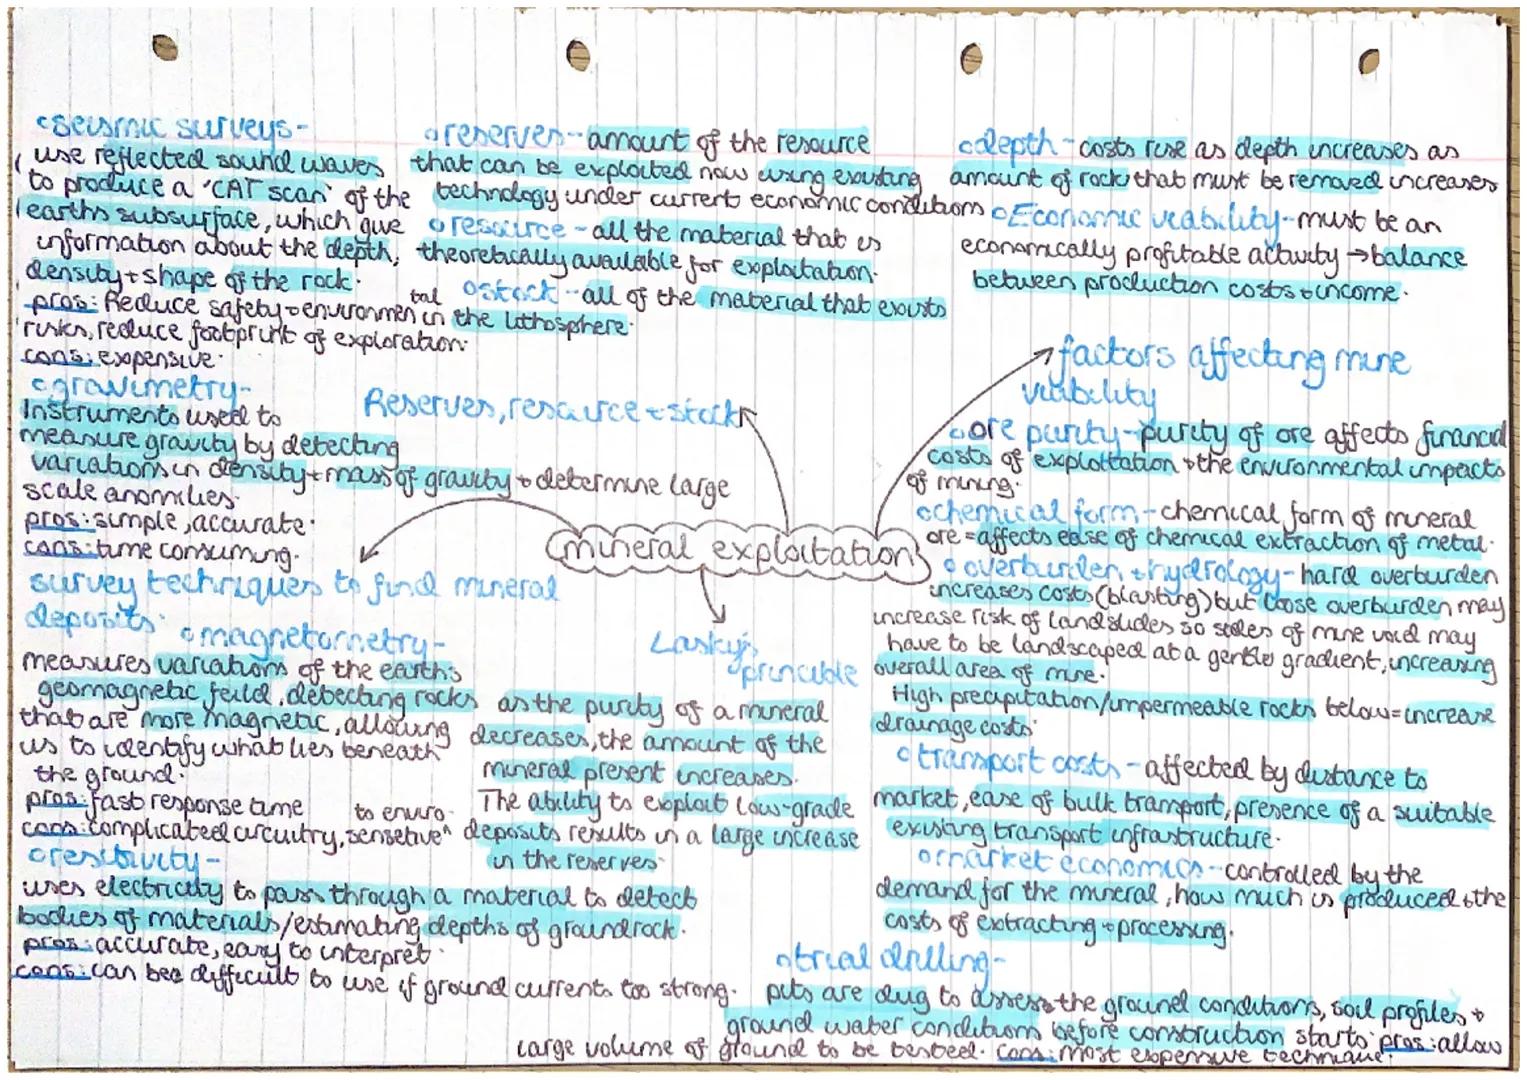 seismic surveys-
use reflected sound waves
to produce a 'CAT scan' of the
earths subsurface, which give
information about the depth,
density + shape of the rock.
pros: Reduce safety + environmental
risks, reduce footprint of exploration.
cons: expensive.
gravimetry-
Instruments used to
measure gravity by detecting
variations in density + mass of gravity + determine large
scale anomilies.
pros: simple, accurate.
cons: time consuming.
survey techniques to find mineral
deposits.
magnetometry-
measures variations of the earth's
geomagnetic feild, detecting rocks
that are more magnetic, allowing
us to identify what lies beneath
the ground.
pros: fast response time
cons: complicated circuitry, sensetive to enviro.
resitivity-
uses electricity to pass through a material to detect
bodies of materials/estimating depths of groundrock.
pros: accurate, easy to interpret.
cons: can bee difficult to use if ground currents too strong.
reserves- amount of the resource
that can be exploited now using existing
technology under current economic conditions
resource - all the material that is
theoretically available for exploitation.
stock - all of the material that exists
in the lithosphere.
Reserves, resource + stock
mineral exploitation
Lasky's
princible
as the purity of a mineral
decreases, the amount of the
mineral present increases.
The ability to exploit low-grade
deposits results in a large increase
in the reserves.
depth - costs rise as depth increases as
amount of rock that must be removed increases
Economic viability - must be an
economically profitable activity → balance
between production costs + income.
factors affecting mine
viability
ore purity - purity of ore affects financial
costs of exploitation + the environmental impacts
of mining.
chemical form - chemical form of mineral
ore = affects ease of chemical extraction of metal.
overburden + hydrology - hard overburden
increases costs (blasting) but loose overburden may
increase risk of landslides so sides of mine void may
have to be landscaped at a gentle gradient, increasing
overall area of mine.
High precipitation/impermeable rocks below = increase
drainage costs.
transport costs - affected by distance to
market, ease of bulk transport, presence of a suitable
existing transport infrastructure.
market economics - controlled by the
demand for the mineral, how much is produced + the
costs of extracting + processing.
trial drilling-
pits are dug to assess the ground conditions, soil profiles +
ground water conditions before construction starts. pros: allow
large volume of ground to be tested. cons: most expensive technique.